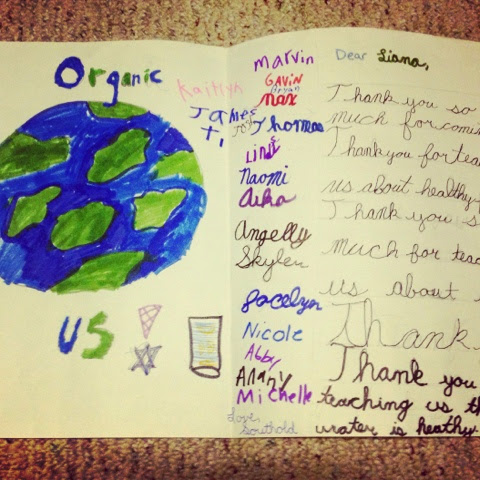 Organic
Kaitlyn
James
T.
US
Marvin
GAVIN
Bryan
max
Thomas
Naomi
Aika
Angelly
Skyler
Jocelyn
Nicole
Abby
Anany
Michelle
Love,
Southold
Dear Liana,
Thank you so
much for comin
Thank you for tea
us about healthy
Thank you s
much for teac
us about
Thank
Thank you
teaching us th
water is heathy